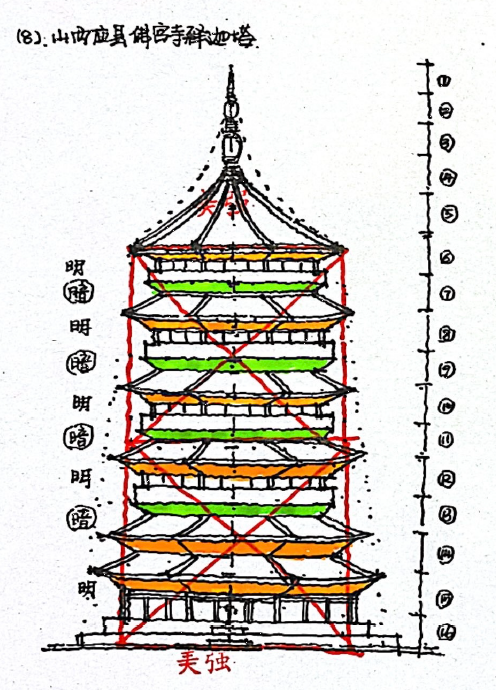 (8).山西应县佛宫寺释迦塔.
明
暗
明
暗
明
暗
明
暗
明
①
②
③
④
⑤
⑥
⑦
⑧
⑨
⑩
⑪
⑫
⑬
⑭
⑮
⑯
美强